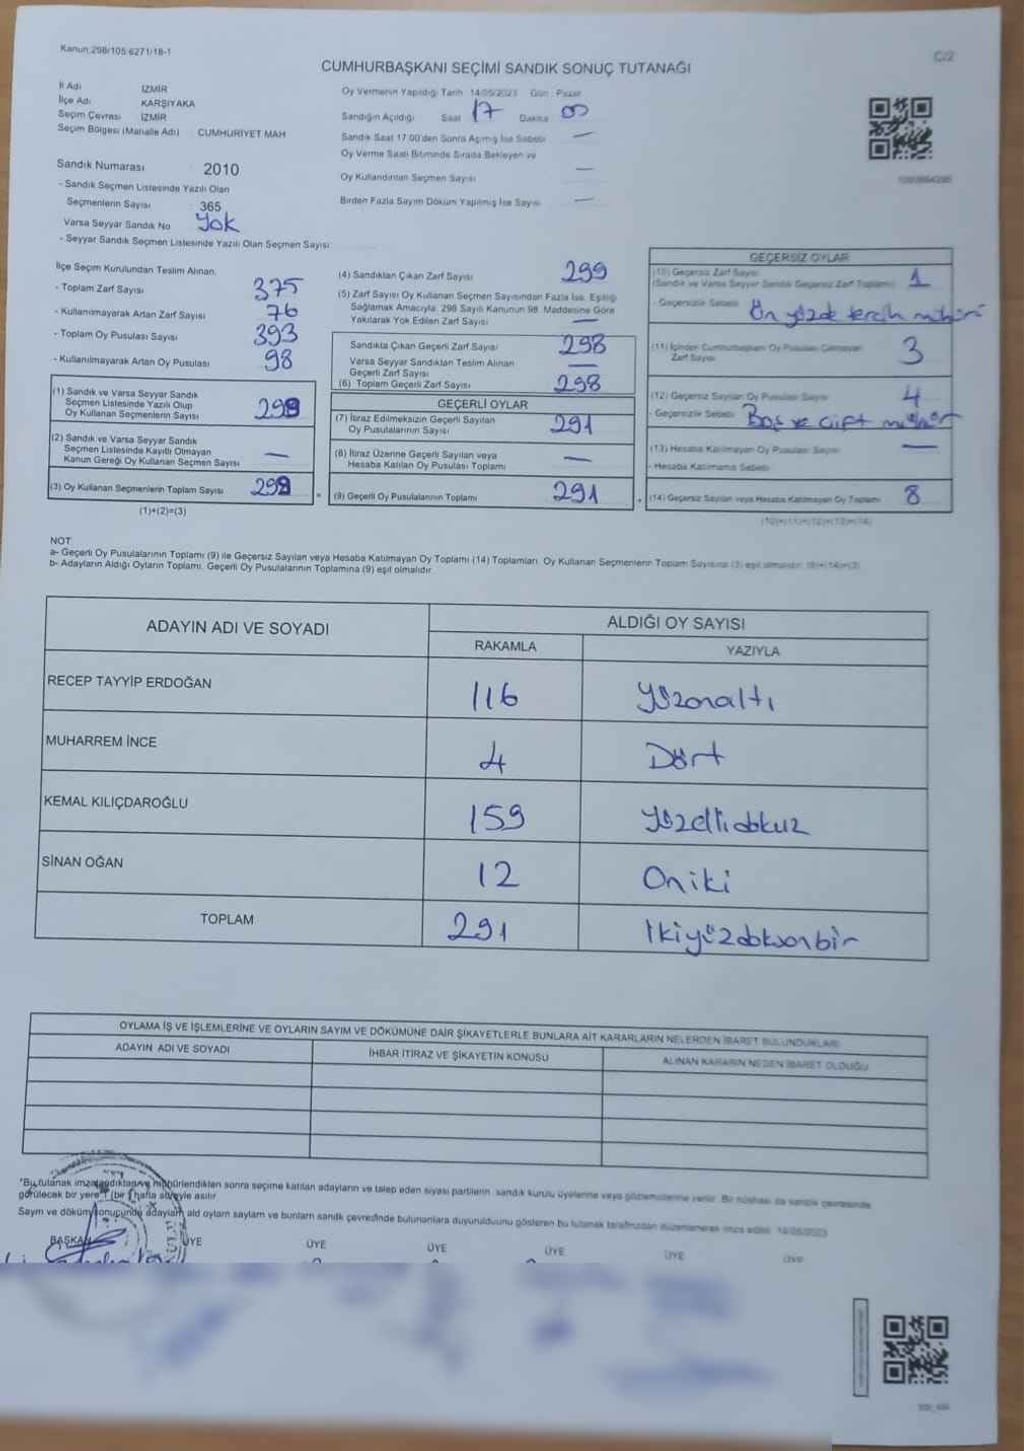 Kanun:298/105 6271/18-1
C/2
CUMHURBAŞKANI SEÇİMİ SANDIK SONUÇ TUTANAĞI
İl Adı İZMİR
İlçe Adı KARŞIYAKA
Seçim Çevresi İZMİR
Seçim Bölgesi (Mahalle Adı) CUMHURİYET MAH
Sandık Numarası 2010
- Sandık Seçmen Listesinde Yazılı Olan
Seçmenlerin Sayısı 365
Varsa Seyyar Sandık No Yok
- Seyyar Sandık Seçmen Listesinde Yazılı Olan Seçmen Sayısı
Oy Vermenin Yapıldığı Tarih 14/05/2023 Gün : Pazar
Sandığın Açıldığı Saat 17 Dakika 00
Sandık Saat 17:00'den Sonra Açılmış İse Sebebi —
Oy Verme Saati Bitiminde Sırada Bekleyen ve
Oy Kullandırılan Seçmen Sayısı —
Birden Fazla Sayım Döküm Yapılmış İse Sayısı —
İlçe Seçim Kurulundan Teslim Alınan:
- Toplam Zarf Sayısı 375
- Kullanılmayarak Artan Zarf Sayısı 76
- Toplam Oy Pusulası Sayısı 393
- Kullanılmayarak Artan Oy Pusulası 98
(1) Sandık ve Varsa Seyyar Sandık
Seçmen Listesinde Yazılı Olup
Oy Kullanan Seçmenlerin Sayısı 299
(2) Sandık ve Varsa Seyyar Sandık
Seçmen Listesinde Kayıtlı Olmayan
Kanun Gereği Oy Kullanan Seçmen Sayısı —
(3) Oy Kullanan Seçmenlerin Toplam Sayısı 299
(1)+(2)=(3)
(4) Sandıktan Çıkan Zarf Sayısı 299
(5) Zarf Sayısı Oy Kullanan Seçmen Sayısından Fazla İse, Eşitliği
Sağlamak Amacıyla, 298 Sayılı Kanunun 98. Maddesine Göre
Yakılarak Yok Edilen Zarf Sayısı —
Sandıkta Çıkan Geçerli Zarf Sayısı 298
Varsa Seyyar Sandıktan Teslim Alınan
Geçerli Zarf Sayısı —
(6) Toplam Geçerli Zarf Sayısı 298
GEÇERLİ OYLAR
(7) İtiraz Edilmeksizin Geçerli Sayılan
Oy Pusulalarının Sayısı 291
(8) İtiraz Üzerine Geçerli Sayılan veya
Hesaba Katılan Oy Pusulası Toplamı —
(9) Geçerli Oy Pusulalarının Toplamı 291
GEÇERSİZ OYLAR
(10) Geçersiz Zarf Sayısı
(Sandık ve Varsa Seyyar Sandık Geçersiz Zarf Toplamı) 1
- Geçersizlik Sebebi Ön yüzde tercih mührü
(11) İçinden Cumhurbaşkanı Oy Pusulası Çıkmayan
Zarf Sayısı 3
(12) Geçersiz Sayılan Oy Pusulası Sayısı 4
- Geçersizlik Sebebi Boş ve çift mühür
(13) Hesaba Katılmayan Oy Pusulası Sayısı —
- Hesaba Katılmama Sebebi
(14) Geçersiz Sayılan veya Hesaba Katılmayan Oy Toplamı 8
(10)+(11)+(12)+(13)=(14)
NOT:
a- Geçerli Oy Pusulalarının Toplamı (9) ile Geçersiz Sayılan veya Hesaba Katılmayan Oy Toplamı (14) Toplamları, Oy Kullanan Seçmenlerin Toplam Sayısına (3) eşit olmalıdır. (9)+(14)=(3)
b- Adayların Aldığı Oyların Toplamı, Geçerli Oy Pusulalarının Toplamına (9) eşit olmalıdır.
ADAYIN ADI VE SOYADI
ALDIĞI OY SAYISI
RAKAMLA YAZIYLA
RECEP TAYYİP ERDOĞAN 116 Yüzonaltı
MUHARREM İNCE 4 Dört
KEMAL KILIÇDAROĞLU 159 Yüzellidokuz
SİNAN OĞAN 12 Oniki
TOPLAM 291 İkiyüzdoksanbir
OYLAMA İŞ VE İŞLEMLERİNE VE OYLARIN SAYIM VE DÖKÜMÜNE DAİR ŞİKAYETLERLE BUNLARA AİT KARARLARIN NELERDEN İBARET BULUNDUKLARI
ADAYIN ADI VE SOYADI İHBAR İTİRAZ VE ŞİKAYETİN KONUSU ALINAN KARARIN NEDEN İBARET OLDUĞU
"Bu tutanak imzalandıktan ve mühürlendikten sonra seçime katılan adayların ve talep eden siyasi partilerin sandık kurulu üyelerine veya gözlemcilerine verilir. Bir nüshası da sandık çevresinde
görülecek bir yere 1 (bir) hafta süreyle asılır.
BAŞKAN ÜYE ÜYE ÜYE ÜYE ÜYE ÜYE